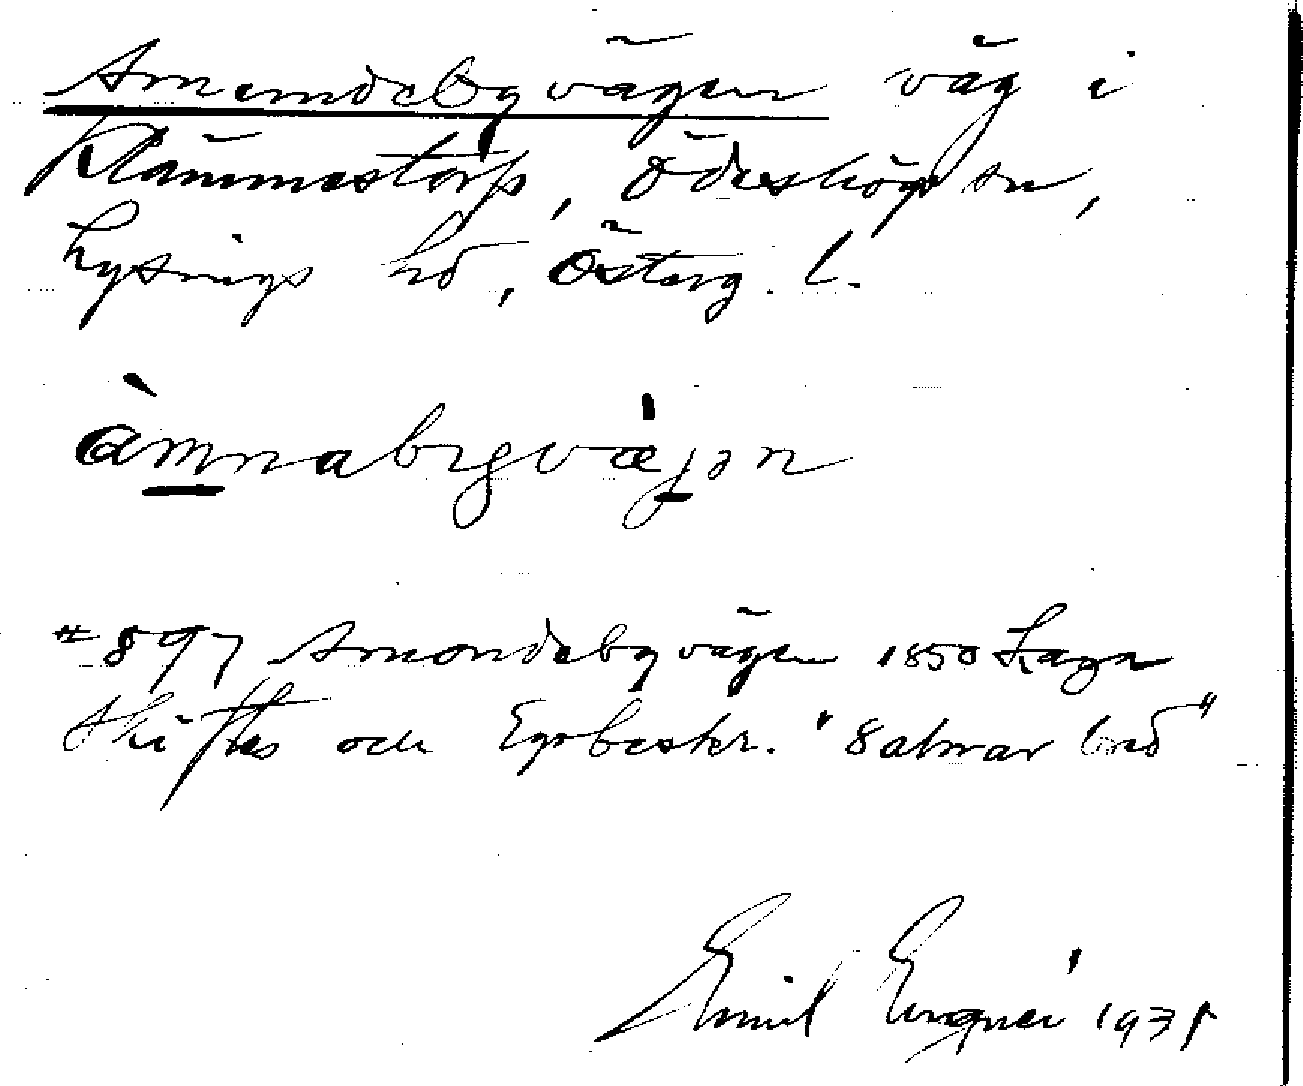 Amundebyvägen väg i
Klämmestorp, Ödeshögs sn,
Lysings hd, Österg. l.
àmnabygvæ̍jən
#897 Amondebyvägen 1850 Laga
Skiftes och Egobeskr. "8 alnar bred"
Emil Engné 1935